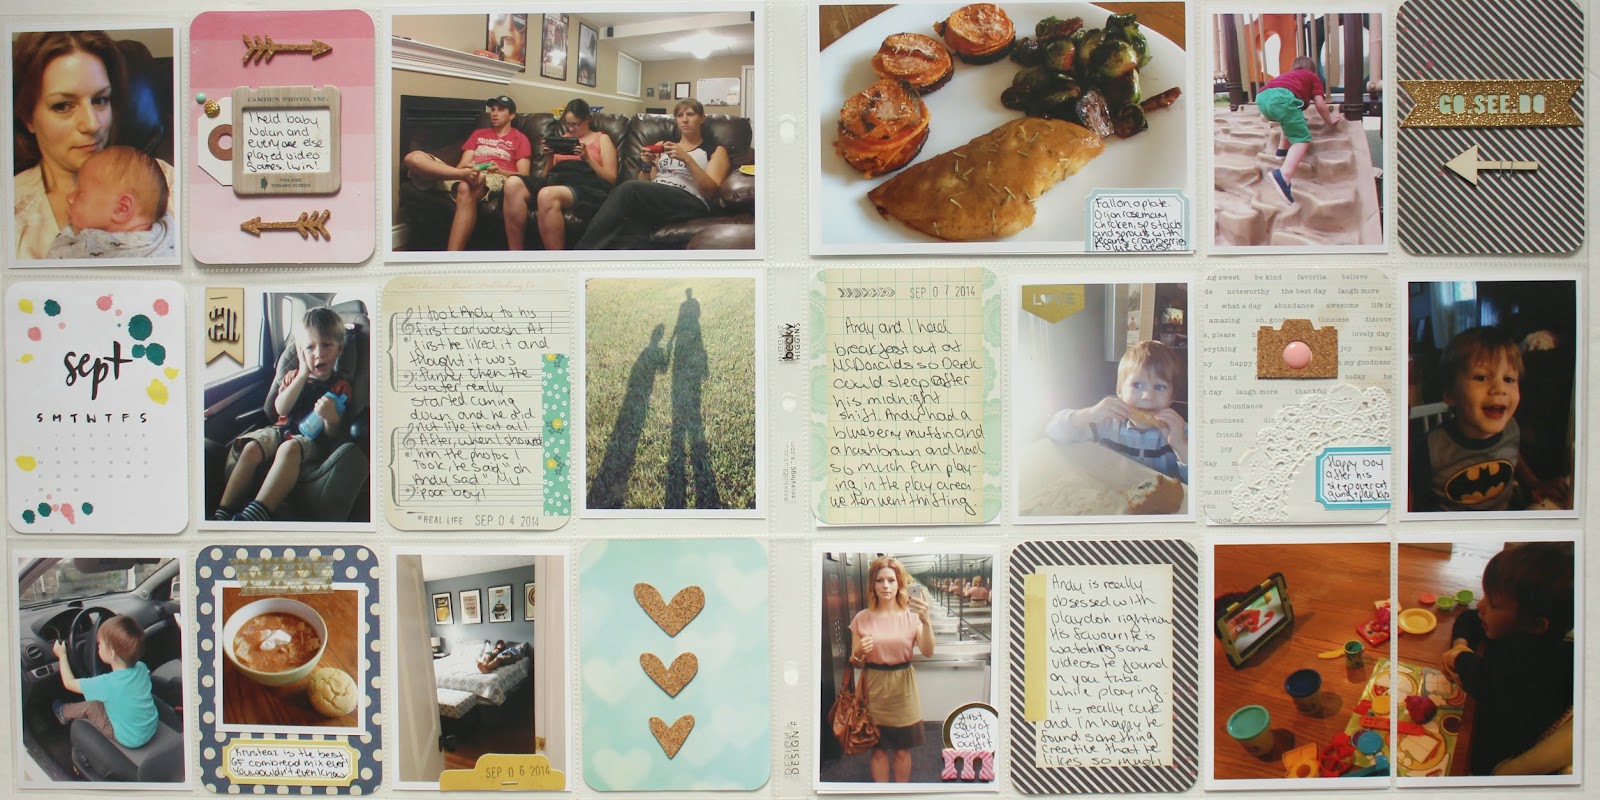 CAMDEN PHOTO, INC.
I held baby
Nolan and
everyone else
played video
games. I win!
THIS SIDE
TOWARD SCREEN
Fall on a plate.
Dijon rosemary
chicken, sp stacks
and sprouts with
pecans, cranberries
blue cheese
GO SEE DO
sept
S M T W T F S
I took Andy to his
first carwash. At
first he liked it and
thought it was
funny. When the
water really
started coming
down and he did
not like it at all.
After, when I showed
him the photos I
took, he said "oh
Andy sad." My
poor boy!
*REAL LIFE SEP 04 2014
becky
HIGGINS
SEP 07 2014
Andy and I had
breakfast out at
McDonalds so Derek
could sleep after
his midnight
shift. Andy had a
blueberry muffin and
a hashbrown and had
so much fun play-
ing in the play area.
We then went thrifting.
LOVE
ing sweet be kind favorite believe
noteworthy the best day laugh more
what a day abundance awesome life is
amazing oh, good timeless discove
lovely day
joy you a
my goodness
be kind today
day laugh more thankful
abundance
friends
enjoy
you more
Happy boy
after his
sleepover at
Krusteaz is the best
GF cornbread mix ever!
You wouldn't even know
SEP 06 2014
DESIGN F
first
day of
school
outfit
Andy is really
obsessed with
playdoh right now
His favourite is
watching some
videos he found
on you tube
while playing.
It is really cute
and I'm happy he
found something
creative that he
likes so much